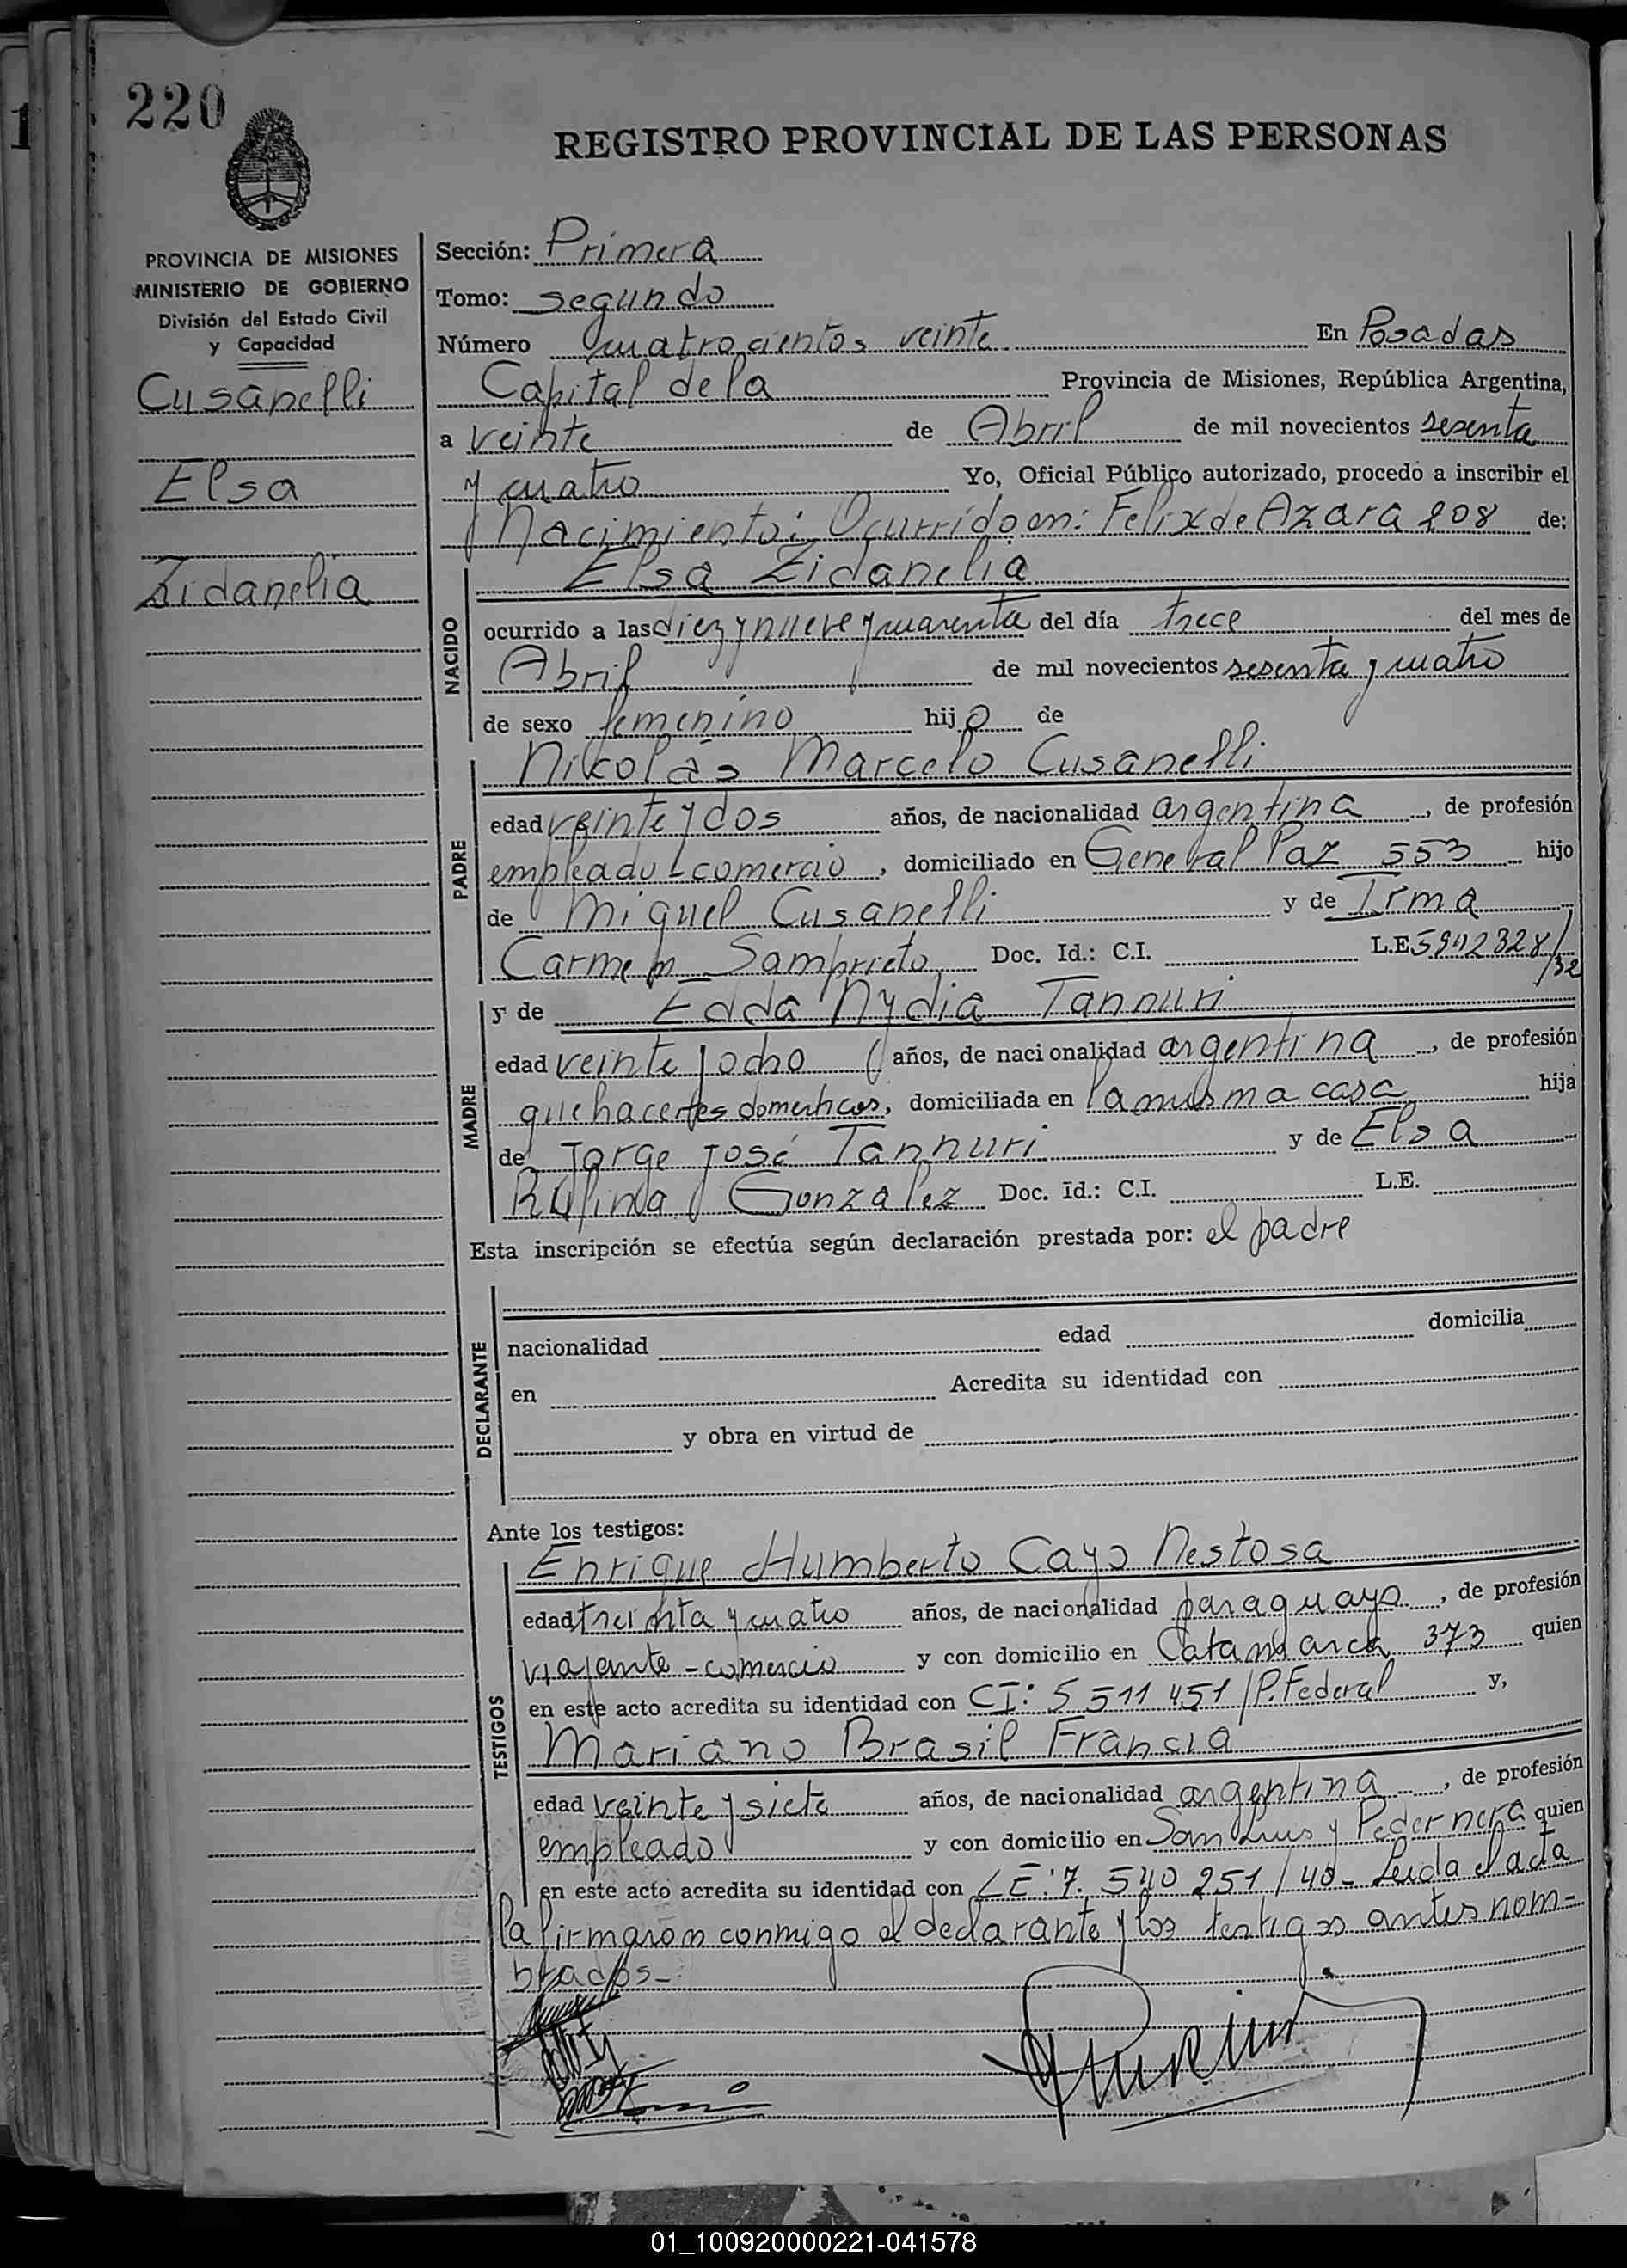 220
REGISTRO PROVINCIAL DE LAS PERSONAS
PROVINCIA DE MISIONES
MINISTERIO DE GOBIERNO
División del Estado Civil
y Capacidad
Cusanelli
Elsa
Zidanelia
Sección: Primera
Tomo: segundo
Número cuatrocientos veinte En Posadas
Capital de la Provincia de Misiones, República Argentina,
a veinte de Abril de mil novecientos sesenta
y cuatro Yo, Oficial Público autorizado, procedo a inscribir el
Nacimiento: Ocurrido en: Felix de Azara 208 de:
Elsa Zidanelia
NACIDO
ocurrido a las diez y nueve y cuarenta del día trece del mes de
Abril de mil novecientos sesenta y cuatro
de sexo femenino hijo de
Nikolás Marcelo Cusanelli
PADRE
edad veinte y dos años, de nacionalidad argentina, de profesión
empleado - comercio, domiciliado en General Paz 553 hijo
de Miguel Cusanelli y de Irma
Carmen Samprieto Doc. Id.: C.I. L.E. 5902328/
/32
y de Edda Nydia Tannuri
MADRE
edad veinte y ocho años, de nacionalidad argentina, de profesión
quehaceres domesticos, domiciliada en la misma casa hija
de Jorge José Tannuri y de Elsa
Rufina Gonzalez Doc. Id.: C.I. L.E.
Esta inscripción se efectúa según declaración prestada por: el padre
DECLARANTE
nacionalidad edad domicilia
en Acredita su identidad con
y obra en virtud de
Ante los testigos:
Enrique Humberto Cayo Nestosa
TESTIGOS
edad treinta y cuatro años, de nacionalidad paraguayo, de profesión
viajante - comercio y con domicilio en Catamarca 373 quien
en este acto acredita su identidad con CI: 5 511 451 /P. Federal y,
Mariano Brasil Francia
edad veinte y siete años, de nacionalidad argentina, de profesión
empleado y con domicilio en San Luis y Pedernera quien
en este acto acredita su identidad con LE: 7. 540 251 / 40 - Leida el acta
la firmaron conmigo el declarante y los testigos antes nom-
brados -
01_100920000221-041578